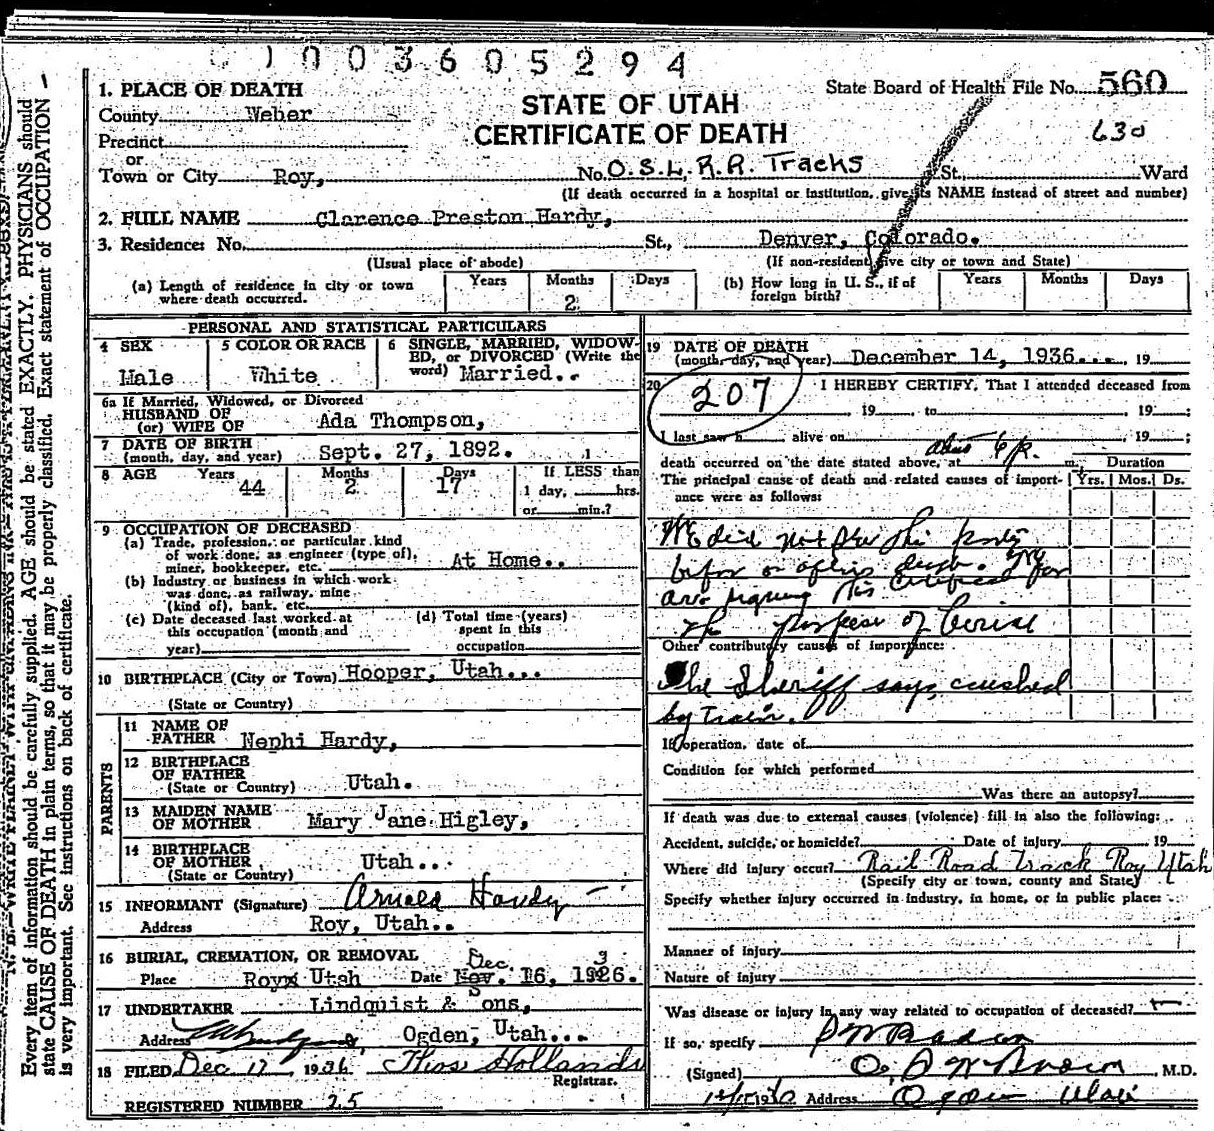 1003605294
1. PLACE OF DEATH
State Board of Health File No. 560
County Weber
STATE OF UTAH
CERTIFICATE OF DEATH
630
Precinct
or
Town or City Roy, No. O.S.L. R.R. Tracks St., Ward
(If death occurred in a hospital or institution, give its NAME instead of street and number)
2. FULL NAME Clarence Preston Hardy,
3. Residence: No. St., Denver, Colorado.
(Usual place of abode) (If non-resident give city or town and State)
(a) Length of residence in city or town where death occurred. Years Months 2 Days
(b) How long in U. S., if of foreign birth? Years Months Days
PERSONAL AND STATISTICAL PARTICULARS
4 SEX Male
5 COLOR OR RACE White
6 SINGLE, MARRIED, WIDOWED, or DIVORCED (Write the word) Married..
6a If Married, Widowed, or Divorced
HUSBAND OF
(or) WIFE OF Ada Thompson,
7 DATE OF BIRTH
(month, day, and year) Sept. 27, 1892.
8 AGE Years 44 Months 2 Days 17 If LESS than
1 day, hrs.
or min.?
9 OCCUPATION OF DECEASED
(a) Trade, profession, or particular kind
of work done, as engineer (type of),
miner, bookkeeper, etc. At Home..
(b) Industry or business in which work
was done, as railway, mine
(kind of), bank, etc.
(c) Date deceased last worked at
this occupation (month and
year)
(d) Total time (years)
spent in this
occupation
10 BIRTHPLACE (City or Town) Hooper, Utah...
(State or Country)
PARENTS
11 NAME OF
FATHER Nephi Hardy,
12 BIRTHPLACE
OF FATHER
(State or Country) Utah.
13 MAIDEN NAME
OF MOTHER Mary Jane Higley,
14 BIRTHPLACE
OF MOTHER
(State or Country) Utah...
15 INFORMANT (Signature) Arnold Hardy
Address Roy, Utah..
16 BURIAL, CREMATION, OR REMOVAL
Place Roy, Utah Date Nov. Dec. 16, 1936.
17 UNDERTAKER Lindquist & Sons,
Address Ogden, Utah...
18 FILED Dec 17, 1936 Thos Hollands
Registrar.
REGISTERED NUMBER 25
19 DATE OF DEATH
(month, day, and year) December 14, 1936... , 19
20 207 I HEREBY CERTIFY, That I attended deceased from
, 19 , to , 19 ;
I last saw h alive on , 19 ;
death occurred on the date stated above, at about 6 p. m.
Duration
The principal cause of death and related causes of importance were as follows: Yrs. Mos. Ds.
We did not see this party
before or after death. We
are signing this certificate for
the purpose of burial
Other contributory causes of importance:
The Sheriff says, crushed
by Train.
If operation, date of
Condition for which performed
Was there an autopsy?
If death was due to external causes (violence) fill in also the following:
Accident, suicide, or homicide? Date of injury 19
Where did injury occur? Rail Road Track Roy Utah
(Specify city or town, county and State)
Specify whether injury occurred in industry, in home, or in public place:
Manner of injury
Nature of injury
Was disease or injury in any way related to occupation of deceased?
If so, specify
(Signed) M.D.
Address Ogden Utah
Every item of information should be carefully supplied. AGE should be stated EXACTLY. PHYSICIANS should
state CAUSE OF DEATH in plain terms, so that it may be properly classified. Exact statement of OCCUPATION
is very important. See instructions on back of certificate.